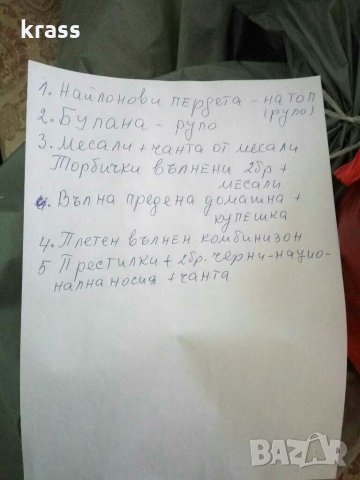 krass
1. Найлонови пердета - на топ
(руло)
2. Булана - руло
3. Месали + чанта от месали
Торбички вълнени 2бр +
месали
4. Вълна предена домашна +
купешка
4. Плетен вълнен комбинизон
5 Престилки + 2бр. черни - нацио-
нална носия + чанта
BAZAR